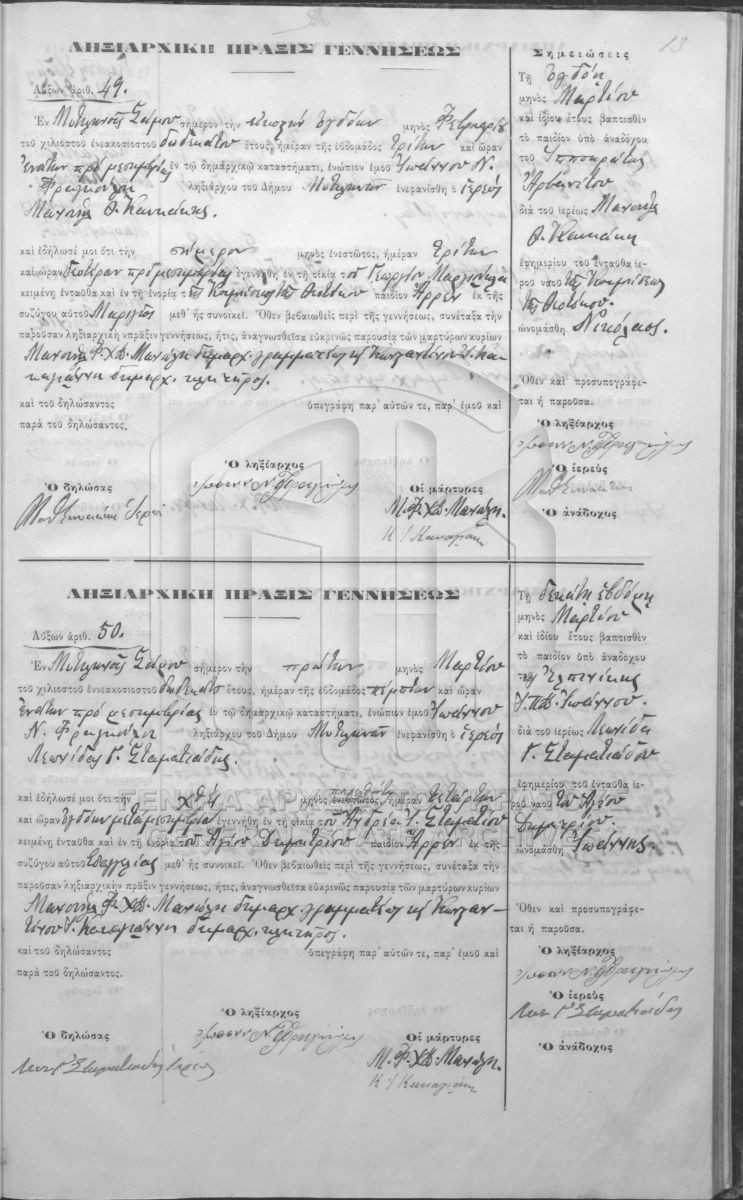 13
ΛΗΞΙΑΡΧΙΚΗ ΠΡΑΞΙΣ ΓΕΝΝΗΣΕΩΣ
Αὔξων ἀριθ. 49.
Ἐν Μυτιληνιοῖς Σάμου σήμερον τὴν εἰκοστήν ὀγδόην μηνὸς Φεβρουαρίου
τοῦ χιλιοστοῦ ἐνεακοσιοστοῦ δωδεκάτου ἔτους, ἡμέραν τῆς ἑβδομάδος Τρίτην καὶ ὥραν
ἐνάτην πρό μεσημβρίας ἐν τῷ δημαρχικῷ καταστήματι, ἐνώπιον ἐμοῦ Ἰωάννου Ν.
Φραγκούλη ληξιάρχου τοῦ Δήμου Μυτιληνιῶν ἐνεφανίσθη ὁ ἱερεύς
Μανουήλ Θ.
καὶ ἐδήλωσέ μοι ὅτι τὴν σήμερον μηνὸς ἐνεστῶτος, ἡμέραν Τρίτην
καὶ ὥραν πρό μεσημβρίας ἐγεννήθη ἐν τῇ οἰκίᾳ τοῦ Γεωργίου
κειμένῃ ἐνταῦθα καὶ ἐν τῇ ἐνορίᾳ τῆς Κοιμήσεως τῆς Θεοτόκου παιδίον Ἄρρεν ἐκ τῆς
συζύγου αὐτοῦ μεθ' ἧς συνοικεῖ. Ὅθεν βεβαιωθεὶς περὶ τῆς γεννήσεως, συνέταξα τὴν
παροῦσαν ληξιαρχικὴν πρᾶξιν γεννήσεως, ἥτις, ἀναγνωσθεῖσα εὐκρινῶς παρουσίᾳ τῶν μαρτύρων κυρίων
Μανουήλ Φ. Χ"Δ. Μανώλη δημαρχ. γραμματέως καί Κωνσταντίνου Ι. Κακα-
γιάννη δημαρχ. κλητῆρος.
καὶ τοῦ δηλώσαντος ὑπεγράφη παρ' αὐτῶν τε, παρ' ἐμοῦ καὶ
παρὰ τοῦ δηλώσαντος.
Ὁ δηλώσας
Ὁ ληξίαρχος
Ἰωάννης Ν. Φραγκούλης
Οἱ μάρτυρες
Μ. Φ. Χ"Δ. Μανώλη.
Κ. Ι. Κακαγιάννη
Σημειώσεις
Τῇ ὀγδόῃ
μηνὸς Μαρτίου
καὶ ἰδίου ἔτους βαπτισθὲν
τὸ παιδίον ὑπὸ ἀναδόχου
τοῦ Ἱπποκράτους
Ἀρβανίτου
διὰ τοῦ ἱερέως Μανουήλ
Θ.
ἐφημερίου τοῦ ἐνταῦθα ἱε-
ροῦ ναοῦ τῆς Κοιμήσεως
τῆς Θεοτόκου.
ὠνομάσθη Νικόλαος.
Ὅθεν καὶ προσυπογράφε-
ται ἡ παροῦσα.
Ὁ ληξίαρχος
Ἰωάννης Ν. Φραγκούλης
Ὁ ἱερεὺς
Ὁ ἀνάδοχος
ΛΗΞΙΑΡΧΙΚΗ ΠΡΑΞΙΣ ΓΕΝΝΗΣΕΩΣ
Αὔξων ἀριθ. 50.
Ἐν Μυτιληνιοῖς Σάμου σήμερον τὴν πρώτην μηνὸς Μαρτίου
τοῦ χιλιοστοῦ ἐννεακοσιοστοῦ δωδεκάτου ἔτους, ἡμέραν τῆς ἑβδομάδος πέμπτην καὶ ὥραν
ἐνάτην πρό μεσημβρίας ἐν τῷ δημαρχικῷ καταστήματι, ἐνώπιον ἐμοῦ Ἰωάννου
Ν. Φραγκούλη ληξιάρχου τοῦ Δήμου Μυτιληνιῶν ἐνεφανίσθη ὁ ἱερεύς
Λεωνίδας Γ. Σταματιάδης.
καὶ ἐδήλωσέ μοι ὅτι τὴν χθές μηνὸς ἐνεστῶτος, παρελθόντος ἡμέραν Τετάρτην
καὶ ὥραν ὀγδόην μετά μεσημβρίαν ἐγεννήθη ἐν τῇ οἰκίᾳ τοῦ Ἀνδρέα Ἰ. Σταματίου
κειμένῃ ἐνταῦθα καὶ ἐν τῇ ἐνορίᾳ τοῦ Ἁγίου Δημητρίου παιδίον Ἄρρεν ἐκ τῆς
συζύγου αὐτοῦ Εὐαγγελίας μεθ' ἧς συνοικεῖ. Ὅθεν βεβαιωθεὶς περὶ τῆς γεννήσεως, συνέταξα τὴν
παροῦσαν ληξιαρχικὴν πρᾶξιν γεννήσεως, ἥτις, ἀναγνωσθεῖσα εὐκρινῶς παρουσίᾳ τῶν μαρτύρων κυρίων
Μανουήλ Φ. Χ"Δ. Μανώλη δημαρχ. γραμματέως καί Κωνσταν-
τίνου Ι. Κακαγιάννη δημαρχ. κλητῆρος.
καὶ τοῦ δηλώσαντος ὑπεγράφη παρ' αὐτῶν τε, παρ' ἐμοῦ καὶ
παρὰ τοῦ δηλώσαντος.
Ὁ δηλώσας
Λεων Γ Σταματιάδης ἱερεύς
Ὁ ληξίαρχος
Ἰωάννης Ν. Φραγκούλης
Οἱ μάρτυρες
Μ. Φ. Χ"Δ. Μανώλη.
Κ. Ι. Κακαγιάννη
Τῇ δεκάτῃ ἑβδόμῃ
μηνὸς Μαρτίου
καὶ ἰδίου ἔτους βαπτισθὲν
τὸ παιδίον ὑπὸ ἀναδόχου
τῆς Ἐλπινίκης
Ἰωάννου.
διὰ τοῦ ἱερέως Λεωνίδα
Γ. Σταματιάδου
ἐφημερίου τοῦ ἐνταῦθα ἱε-
ροῦ ναοῦ τοῦ Ἁγίου
Δημητρίου.
ὠνομάσθη Ἰωάννης.
Ὅθεν καὶ προσυπογράφε-
ται ἡ παροῦσα.
Ὁ ληξίαρχος
Ἰωάννης Ν. Φραγκούλης
Ὁ ἱερεὺς
Λεων Γ Σταματιάδης
Ὁ ἀνάδοχος